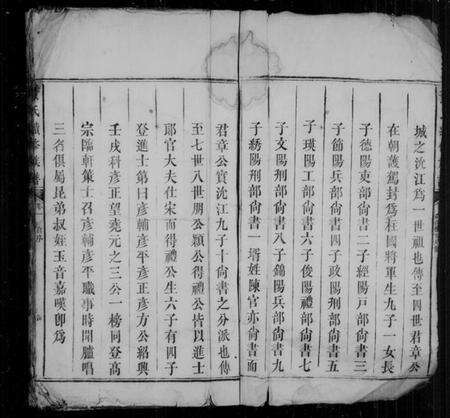 城之沇江爲一世祖也傳至四世君章公
在朝護駕封爲柱國將軍生九子一女長
子德陽吏部尙書二子經陽戶部尙書三
子飾陽兵部尙書四子政陽刑部尙書五
子瑛陽工部尙書六子俊陽禮部尙書七
子文陽刑部尙書八子錦陽兵部尙書九
子綉陽刑部尙書 壻姓陳官亦尙書而
君章公實沇江九子十尙書之分派也傳
至七世八世朋公顯公得禮公皆以進士
郎官大夫仕宋而得禮公生六子有四子
登進士第曰彥輔彥平彥正彥方公紹興
壬戌科彥正望堯元之三公一榜同登髙
宗臨軒策士召彥輔彥平職事時聞臚唱
三名俱屬昆弟叔姪玉音嘉嘆卽爲